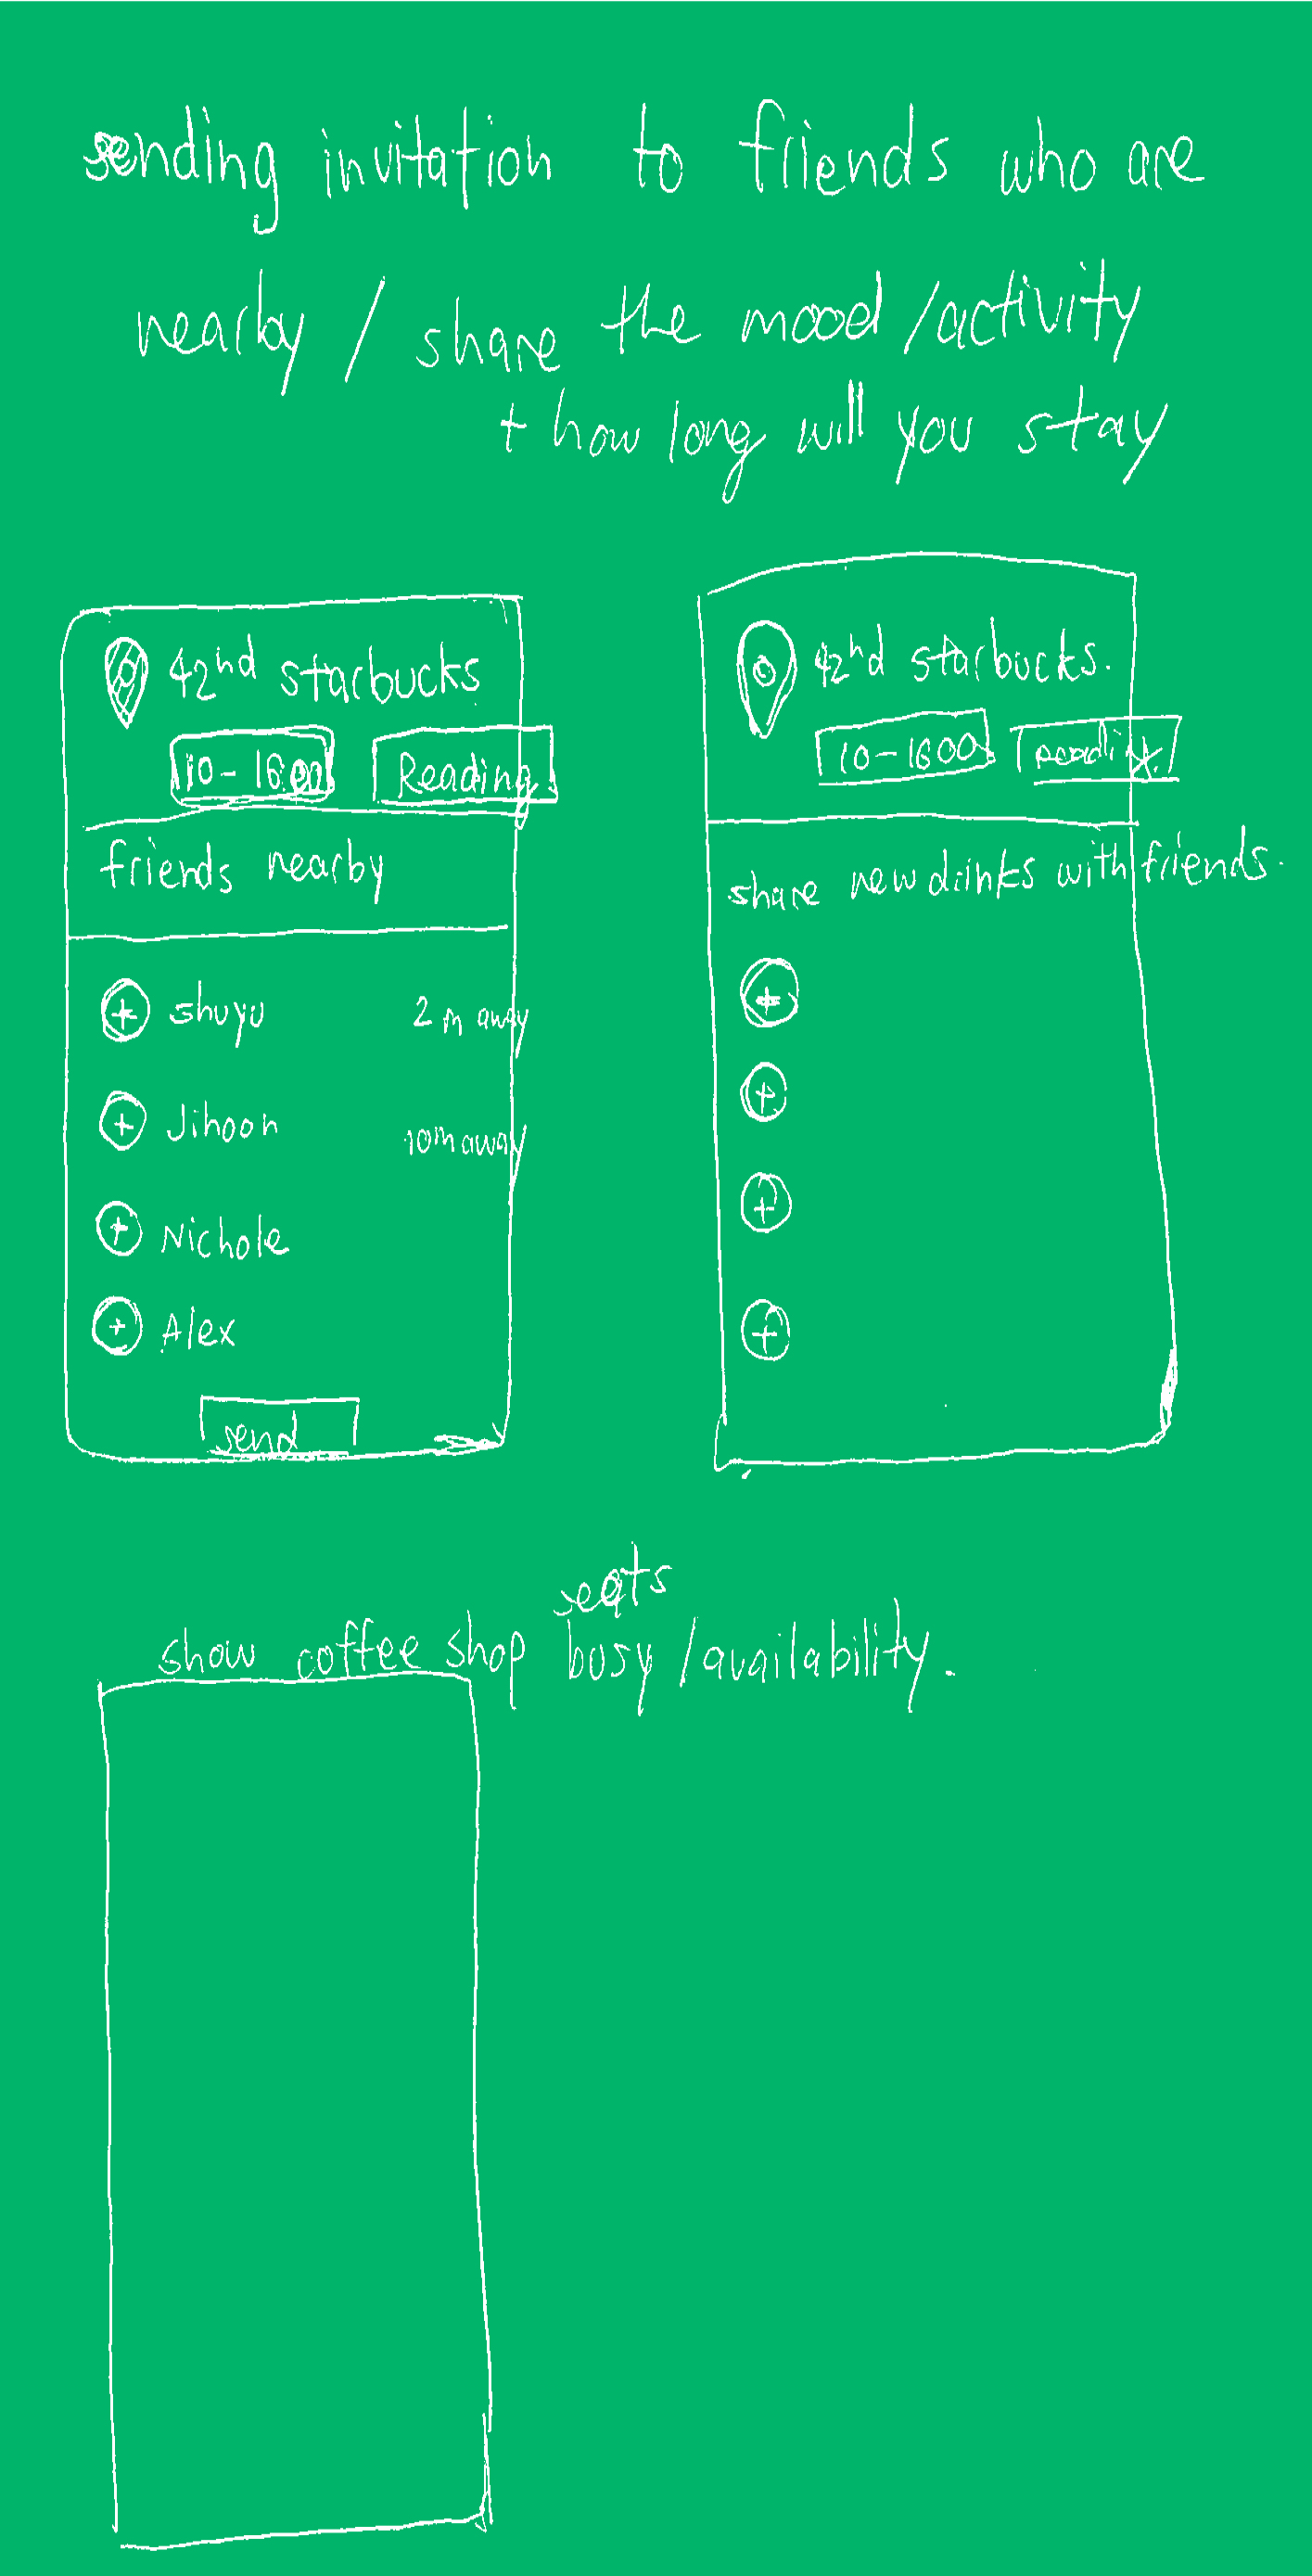 sending invitation to friends who are
nearby / share the mood /activity
+ how long will you stay
42nd starbucks
10-1600
Reading
friends nearby
+ shuyu 2 m away
+ Jihoon 10m away
+ Nichole
+ Alex
send
42nd starbucks.
10-1600
reading
share new drinks with friends.
+
+
+
+
seats
show coffee shop busy /availability.